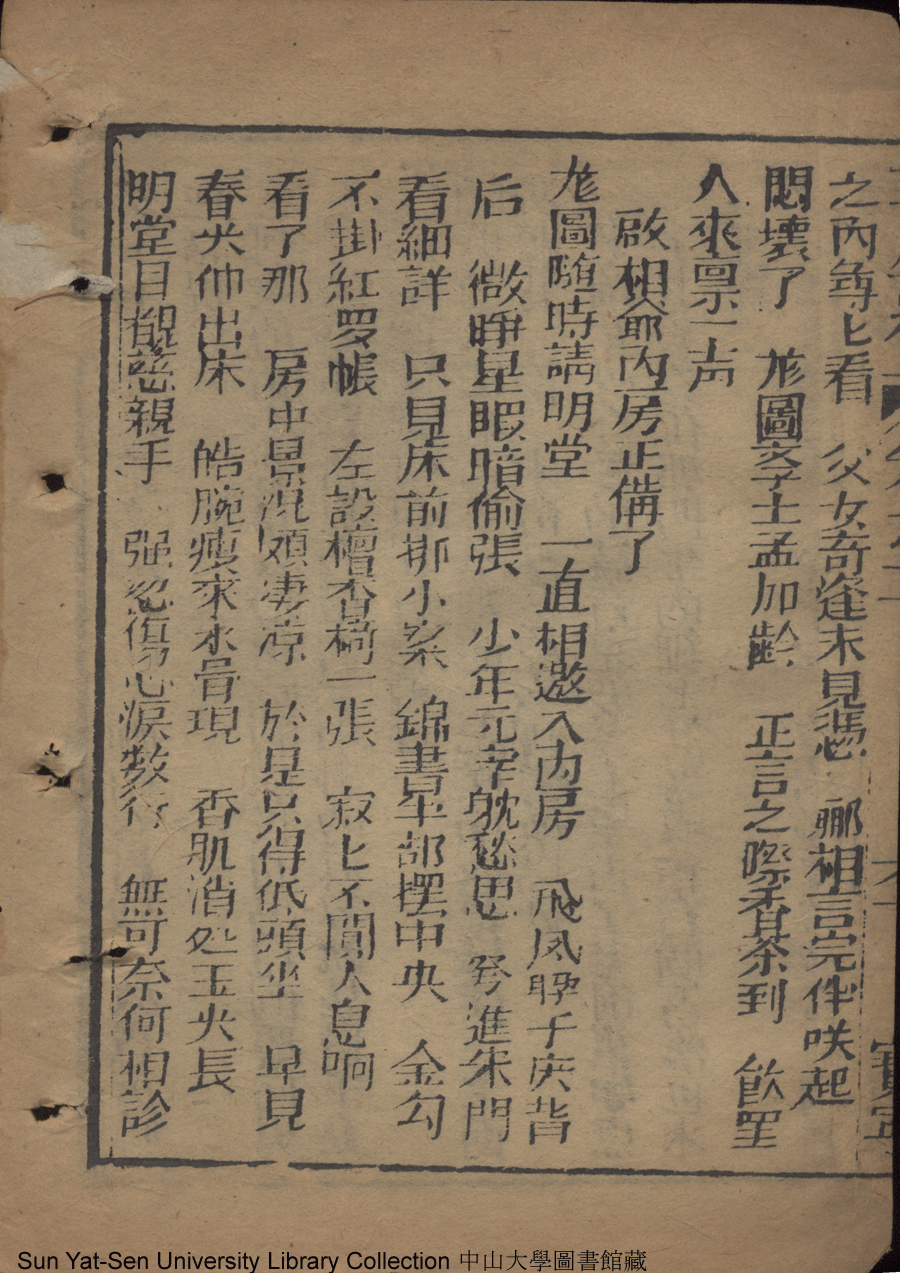 之內尊匕看　父女奇逢未見憑　酈相言完伴咲起
悶壞了　尨圖孝士孟加齡　正言之際香茶到　飲罢
人來禀一声
啟相爺內房正俻了
尨圖随時請明堂　一直相邀入內房　飛凤聨于床背
后　微睜星眼暗偷張　少年元宰躭愁思　移進朱門
看細詳　只見床前挷小案　錦書早部擺中央　金勾
不掛紅罗帳　左設檀香椅一張　寂匕不聞人息响
看了那　房中景况頗凄凉　於是只得低頭坐　早見
春尖伸出床　皓腕瘦來氷骨現　香肌消処玉尖長
明堂目覩慈親手　强忍傷心淚数行　無可奈何相診
Sun Yat-Sen University Library Collection 中山大學圖書館藏